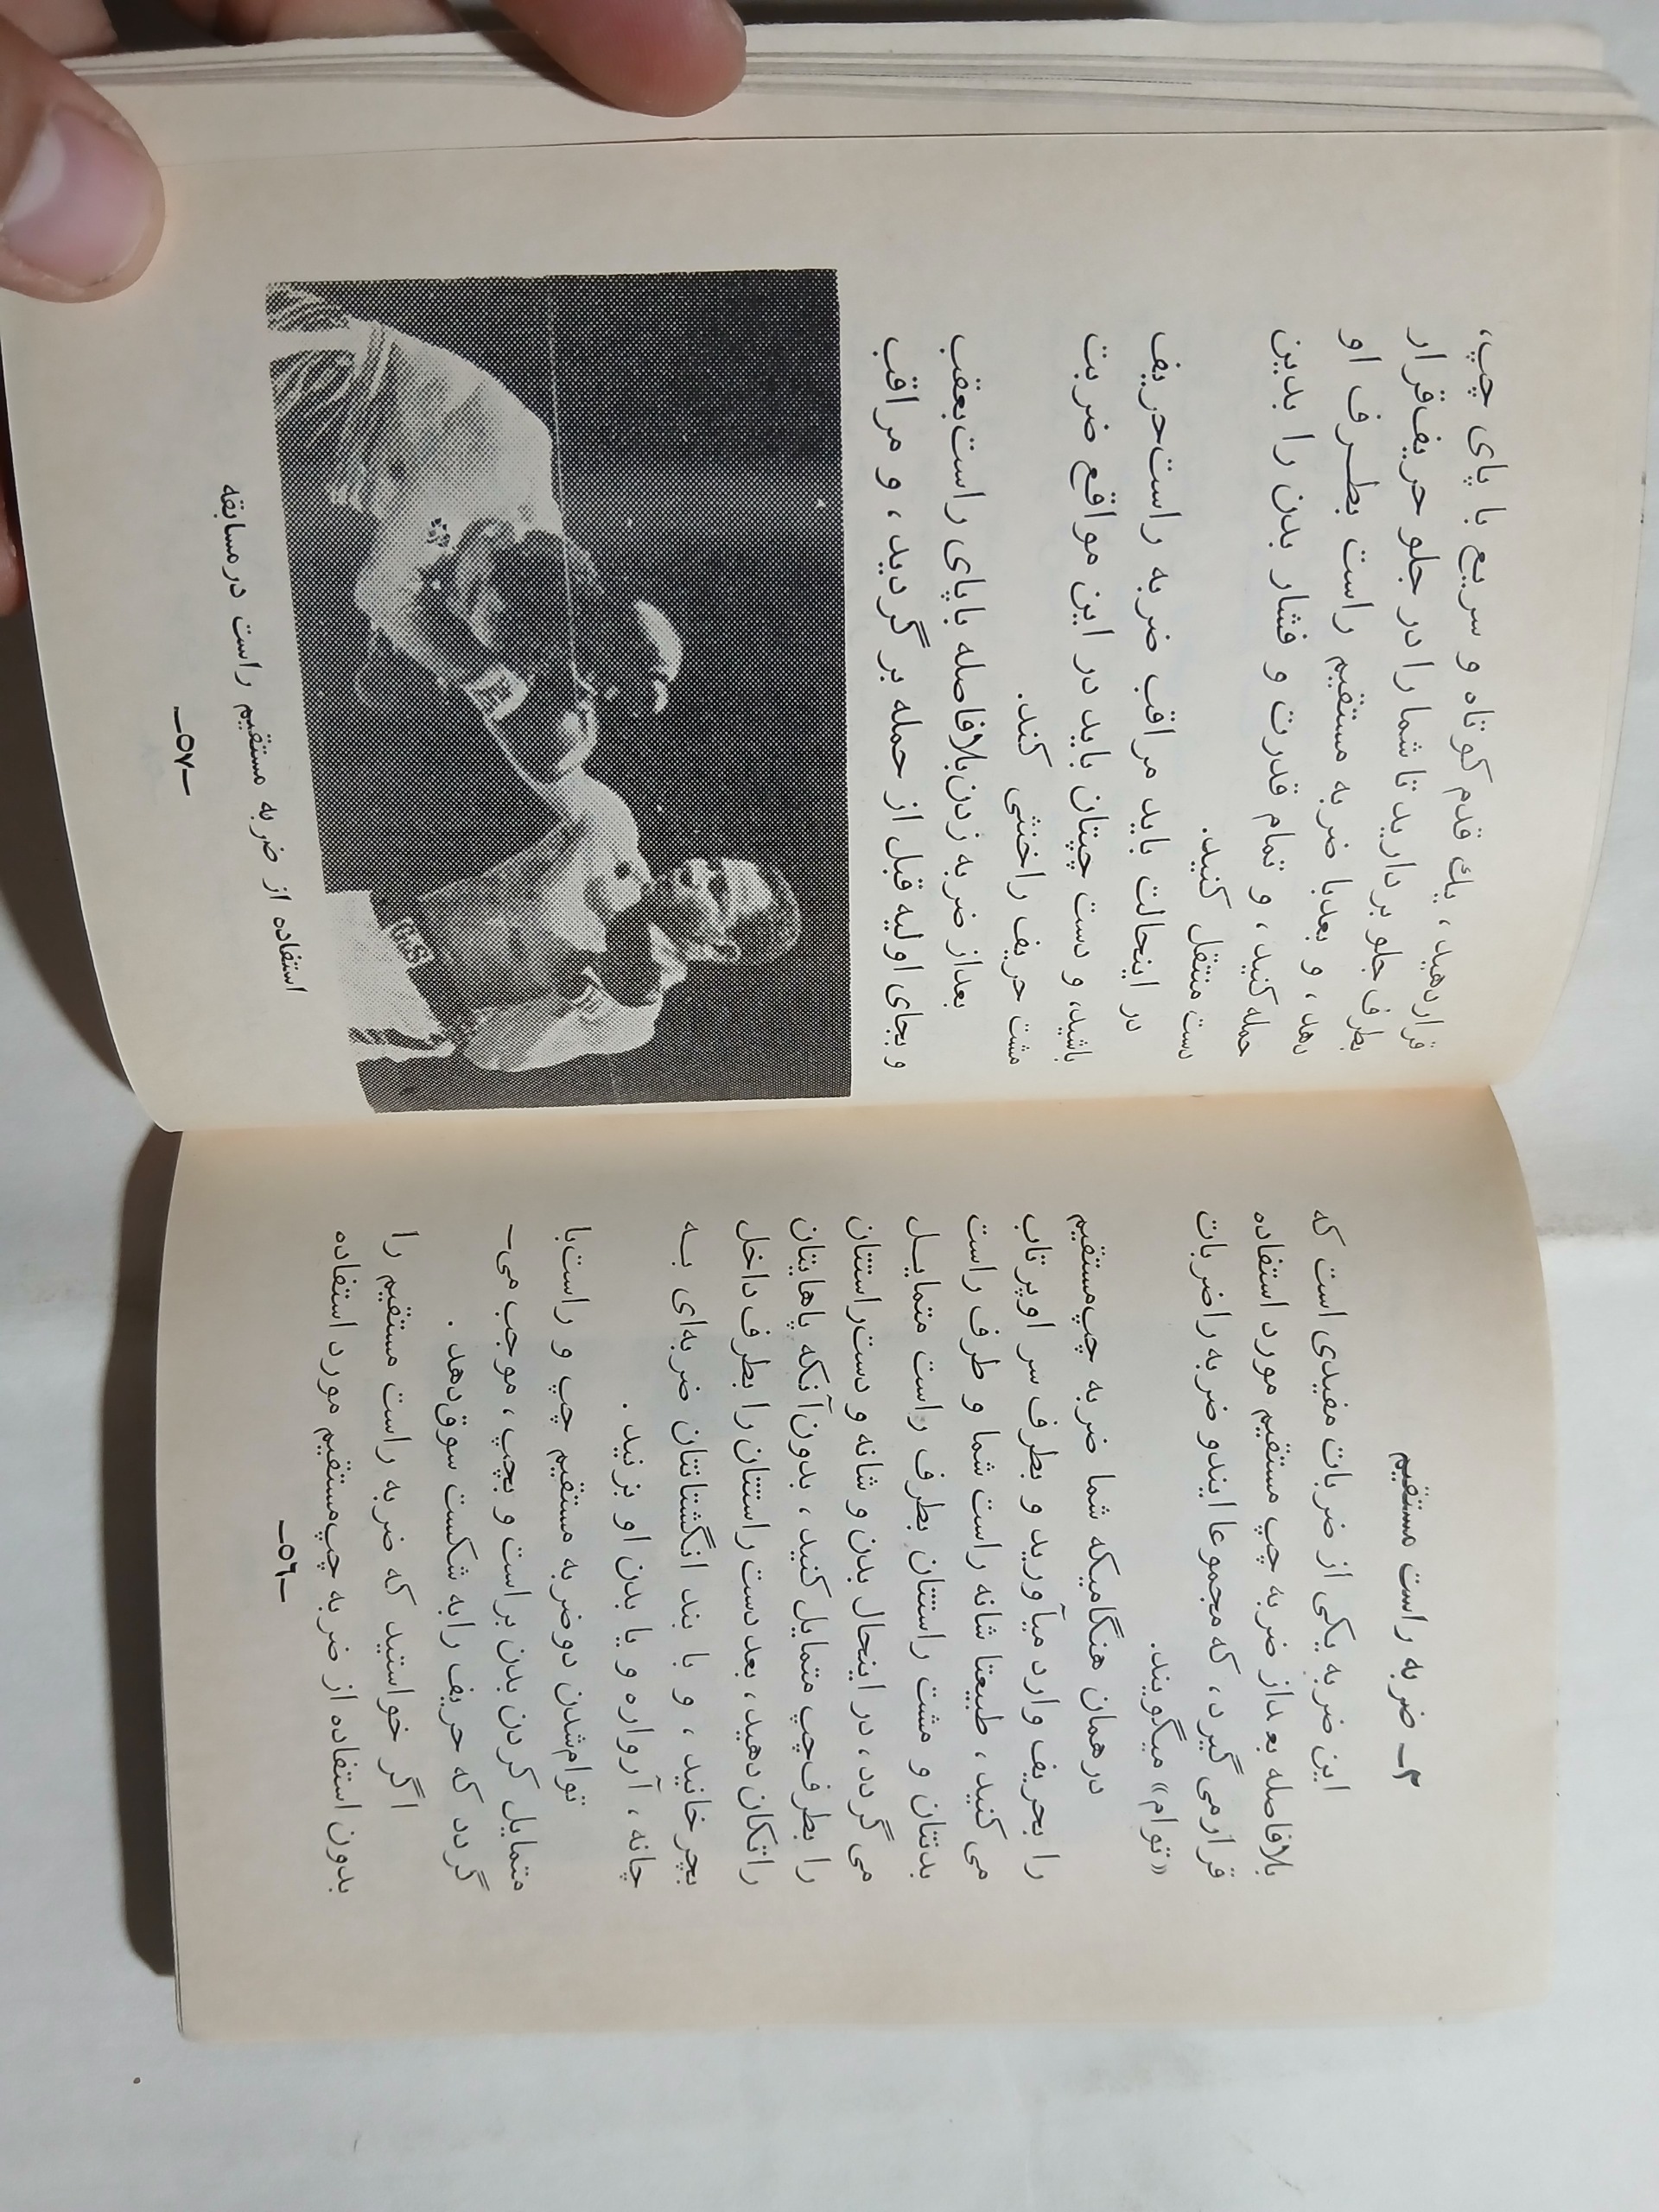 ۲ــ ضربه راست مستقیم
این ضربه یکی از ضربات مفیدی است که
بلافاصله بعداز ضربه چپ مستقیم مورد استفاده
قرارمی گیرد، که مجموعا ایندو ضربه راضربات
«توام» میگویند.
درهمان هنگامیکه شما ضربه چپ‌مستقیم
را بحریف وارد میآورید و بطرف سر اوپرتاب
می‌کنید، طبیعتا شانه راست شما و طرف راست
بدنتان و مشت راستتان بطرف راست متمایــل
می‌گردد، دراینحال بدن و شانه و دست‌راستتان
را بطرف‌چپ متمایل کنید، بدون‌آنکه پاهایتان
راتکان دهید، بعد دست راستتان را بطرف داخل
بچرخانید، و با بند انگشتانتان ضربه‌ای بــه
چانه، آرواره و یا بدن او بزنید.
توام‌شدن دوضربه مستقیم چپ و راست‌با
متمایل کردن بدن براست و بچپ، موجب می‌ــ
گردد که حریف رابه شکست سوق‌دهد.
اگر خواستید که ضربه راست مستقیم را
بدون استفاده از ضربه چپ‌مستقیم مورد استفاده
ــ۵٦ــ
قراردهید، یك قدم کوتاه و سریع با پای چپ،
بطرف جلو بردارید تا شما را در جلو حریف‌قرار
دهد، و بعدبا ضربه مستقیم راست بطــرف او
حمله کنید، و تمام قدرت و فشار بدن را بدین
دست منتقل کنید.
در اینحالت باید مراقب ضربه راست‌حریف
باشید، و دست چپتان باید در این مواقع ضربت
مشت حریف راخنثی کند.
بعداز ضربه زدن‌بلافاصله باپای راست‌بعقب
و بجای اولیه قبل از حمله برگردید، و مراقب
استفاده از ضربه مستقیم راست درمسابقه
ــ۵۷ــ